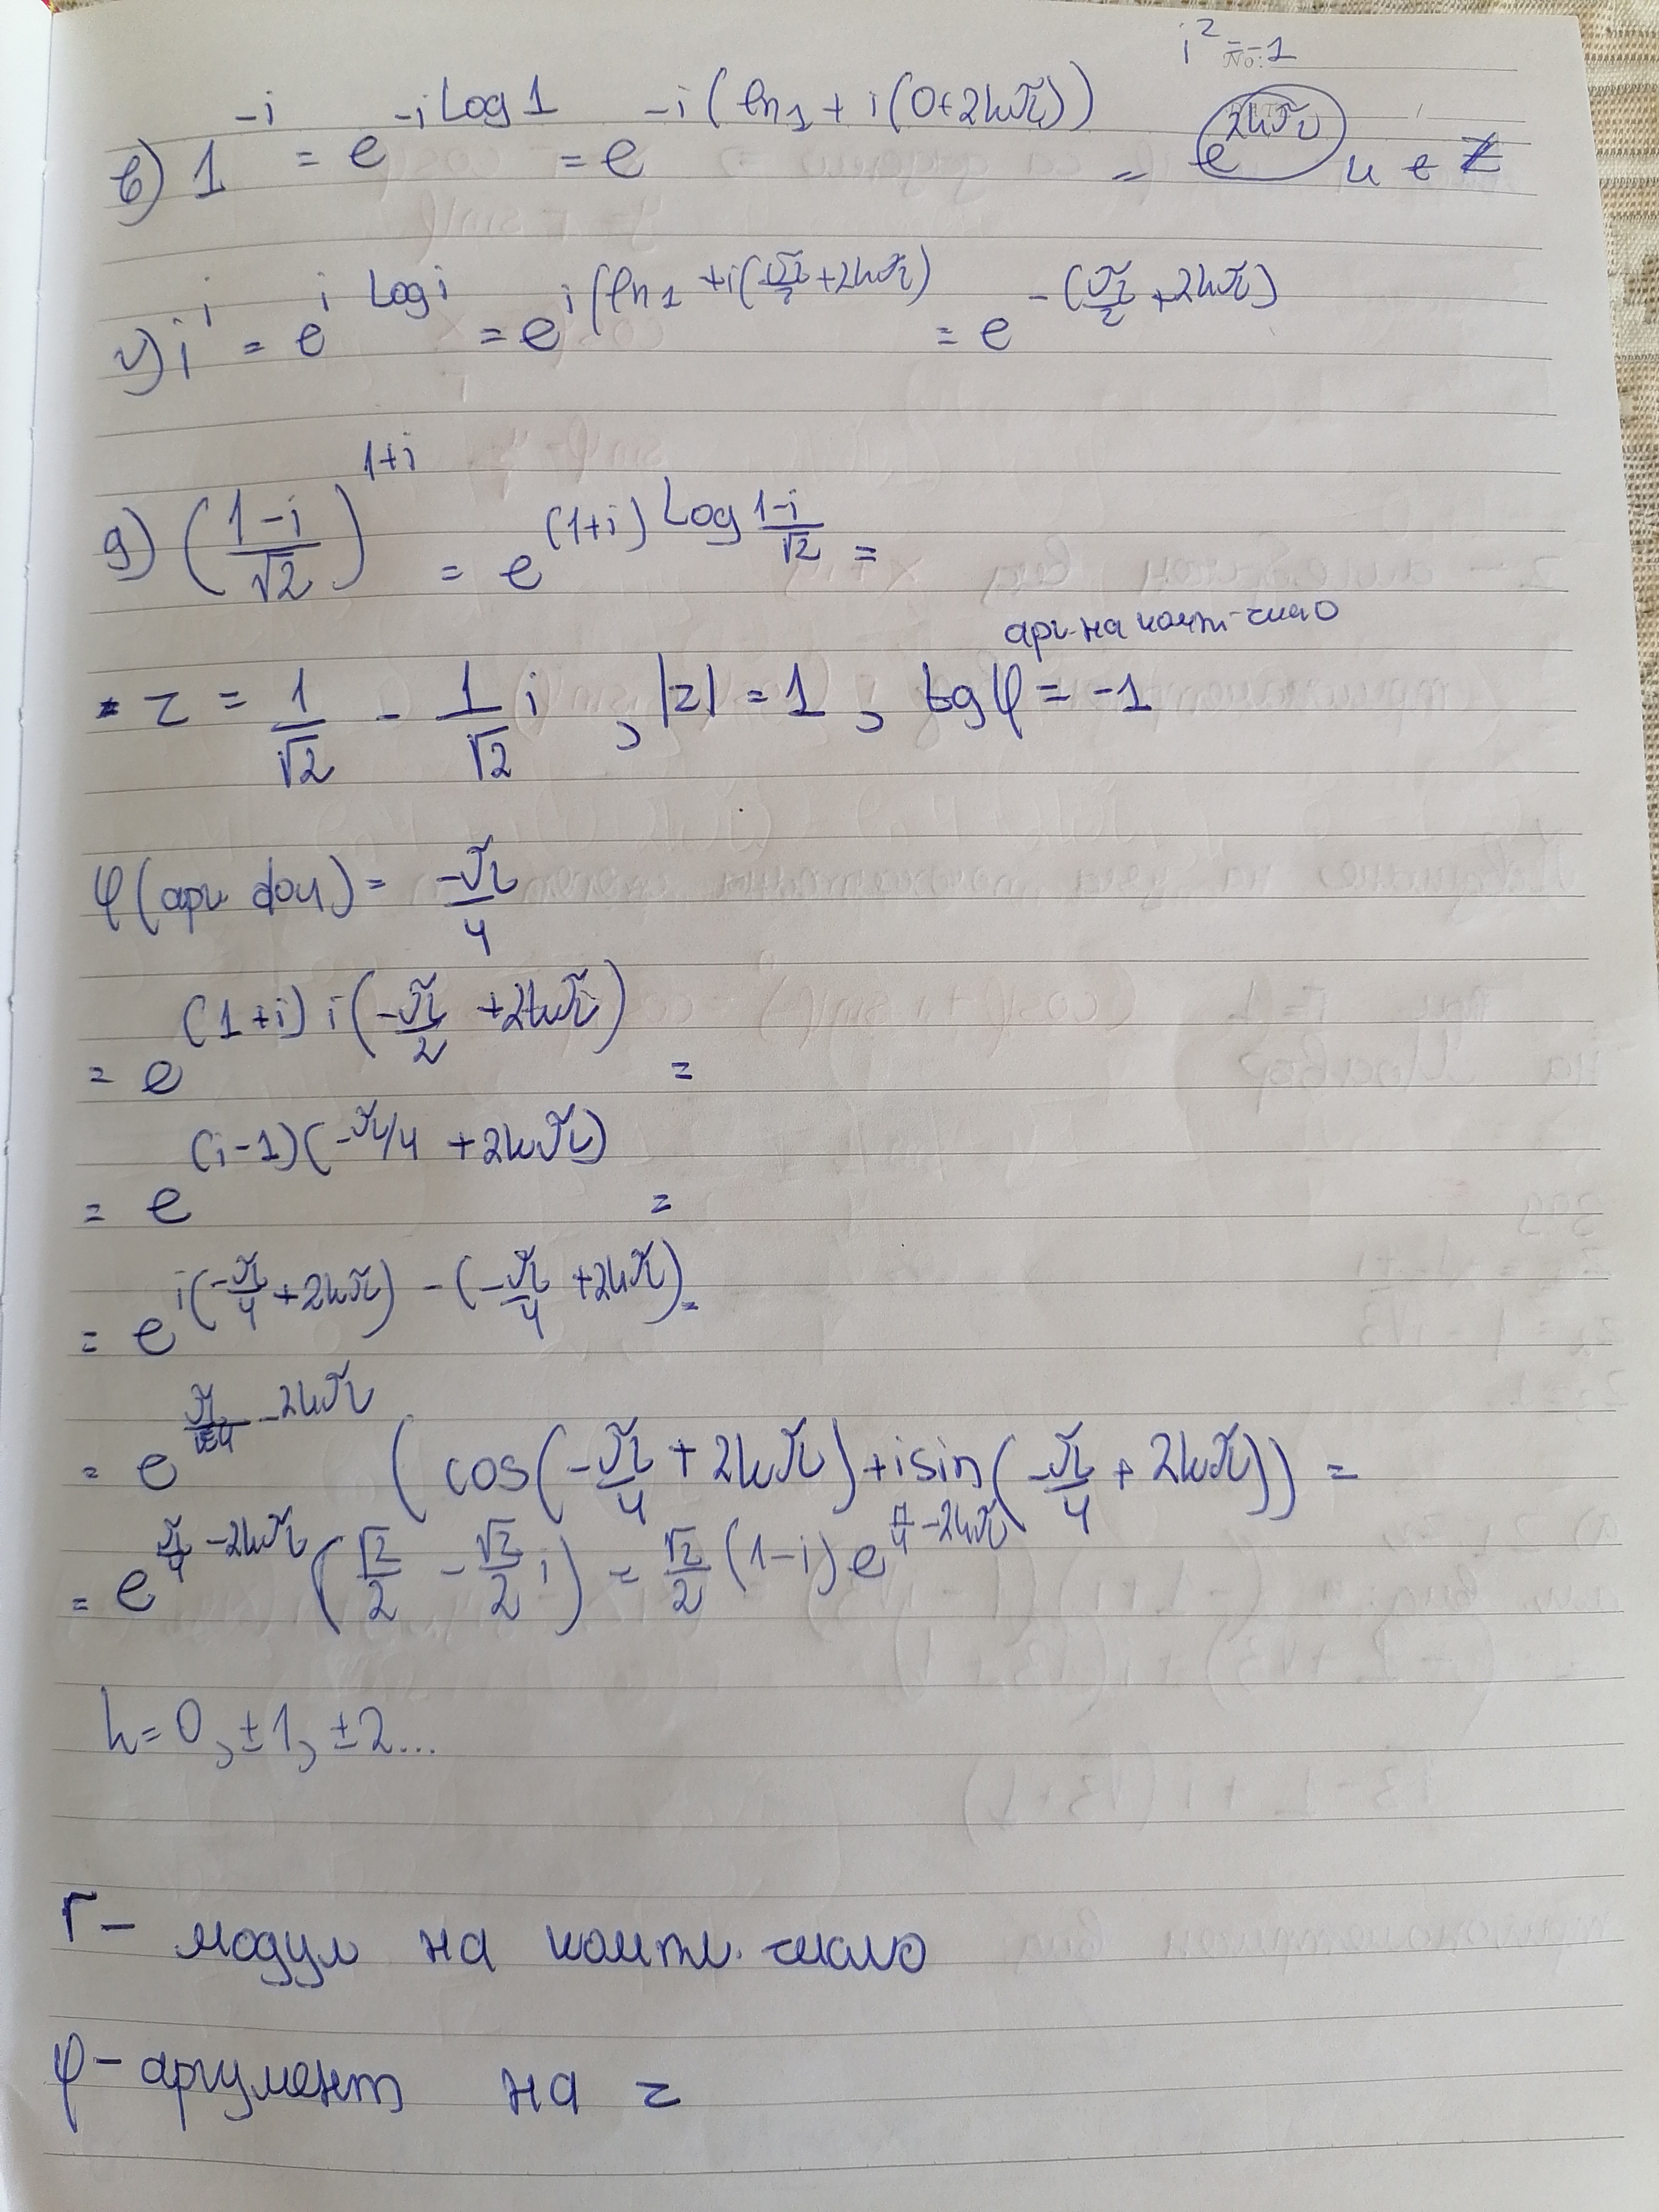 i² = -1
No:
в) 1^(-i) = e^(-i Log 1) = e^(-i(ln1 + i(0+2kπ))) = e^(2kπ) k ∈ Z
г) i^i = e^(i Log i) = e^(i(ln1 + i(π/2 + 2kπ))) = e^(-(π/2 + 2kπ))
д) ((1-i)/√2)^(1+i) = e^((1+i) Log (1-i)/√2) =
арг. на компл. число
z = 1/√2 - 1/√2 i , |z| = 1 , tg φ = -1
φ (арг) = -π/4
= e^((1+i) i(-π/2 + 2kπ)) =
= e^((i-1)(-π/4 + 2kπ)) =
= e^(i(-π/4 + 2kπ) - (-π/4 + 2kπ)) =
= e^(π/4 - 2kπ) (cos(-π/4 + 2kπ) + i sin(-π/4 + 2kπ)) =
= e^(π/4 - 2kπ) (√2/2 - √2/2 i) = √2/2 (1-i) e^(π/4 - 2kπ)
k = 0, ±1, ±2...
r - модул на компл. число
φ - аргумент на z